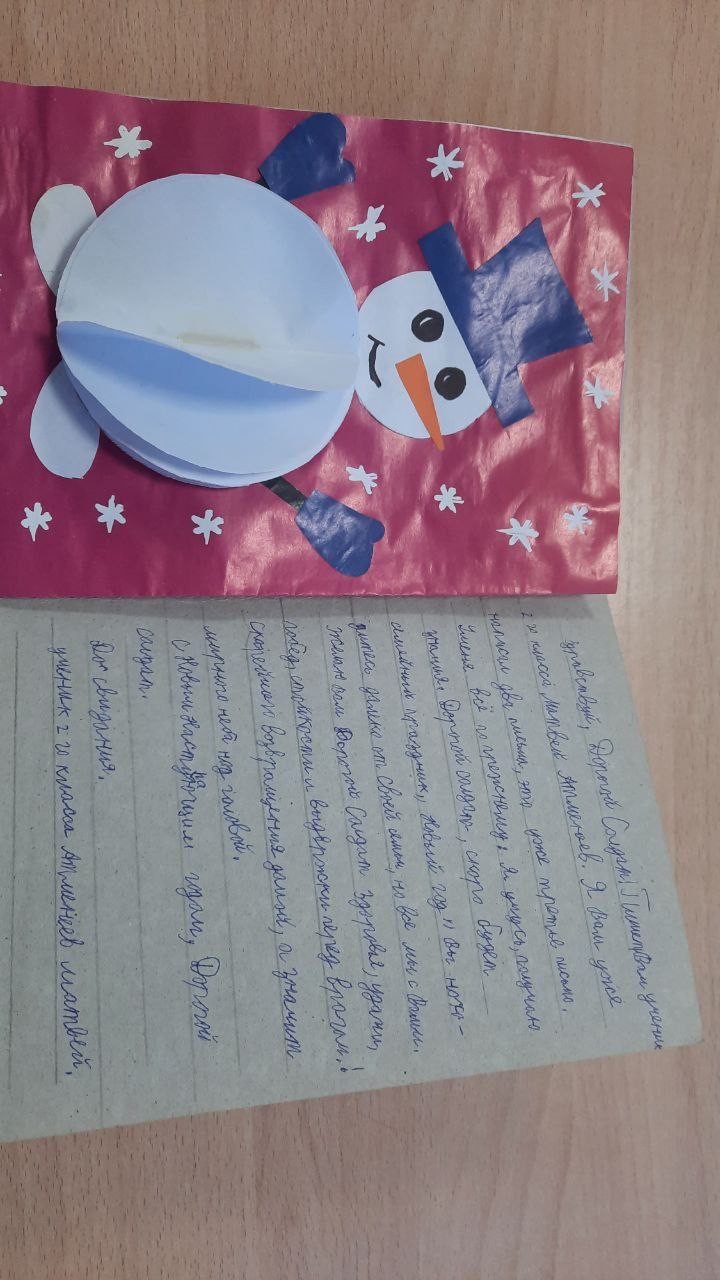 Здравствуй, Дорогой Солдат! Пишит Вам ученик
2 "г" класса Матвей Атменеев. Я Вам уже
написал два письма, это уже третье письмо.
У меня всё по прежнему. Я учусь, получаю
знания. Дорогой солдат, скоро будет
семейный праздник, Новый год и вы нахо-
дитесь далеко от своей семьи, но все мы с Вами.
Желаю вам Дорогой Солдат здоровья, удачи,
побед, стойкости и выдержки перед врагом!
Скорейшего возвращения домой, а значит
мирного неба над головой.
С Новым Наступающим годом, Дорогой
солдат.
До свидания.
ученик 2 "г" класса Атменеев Матвей.